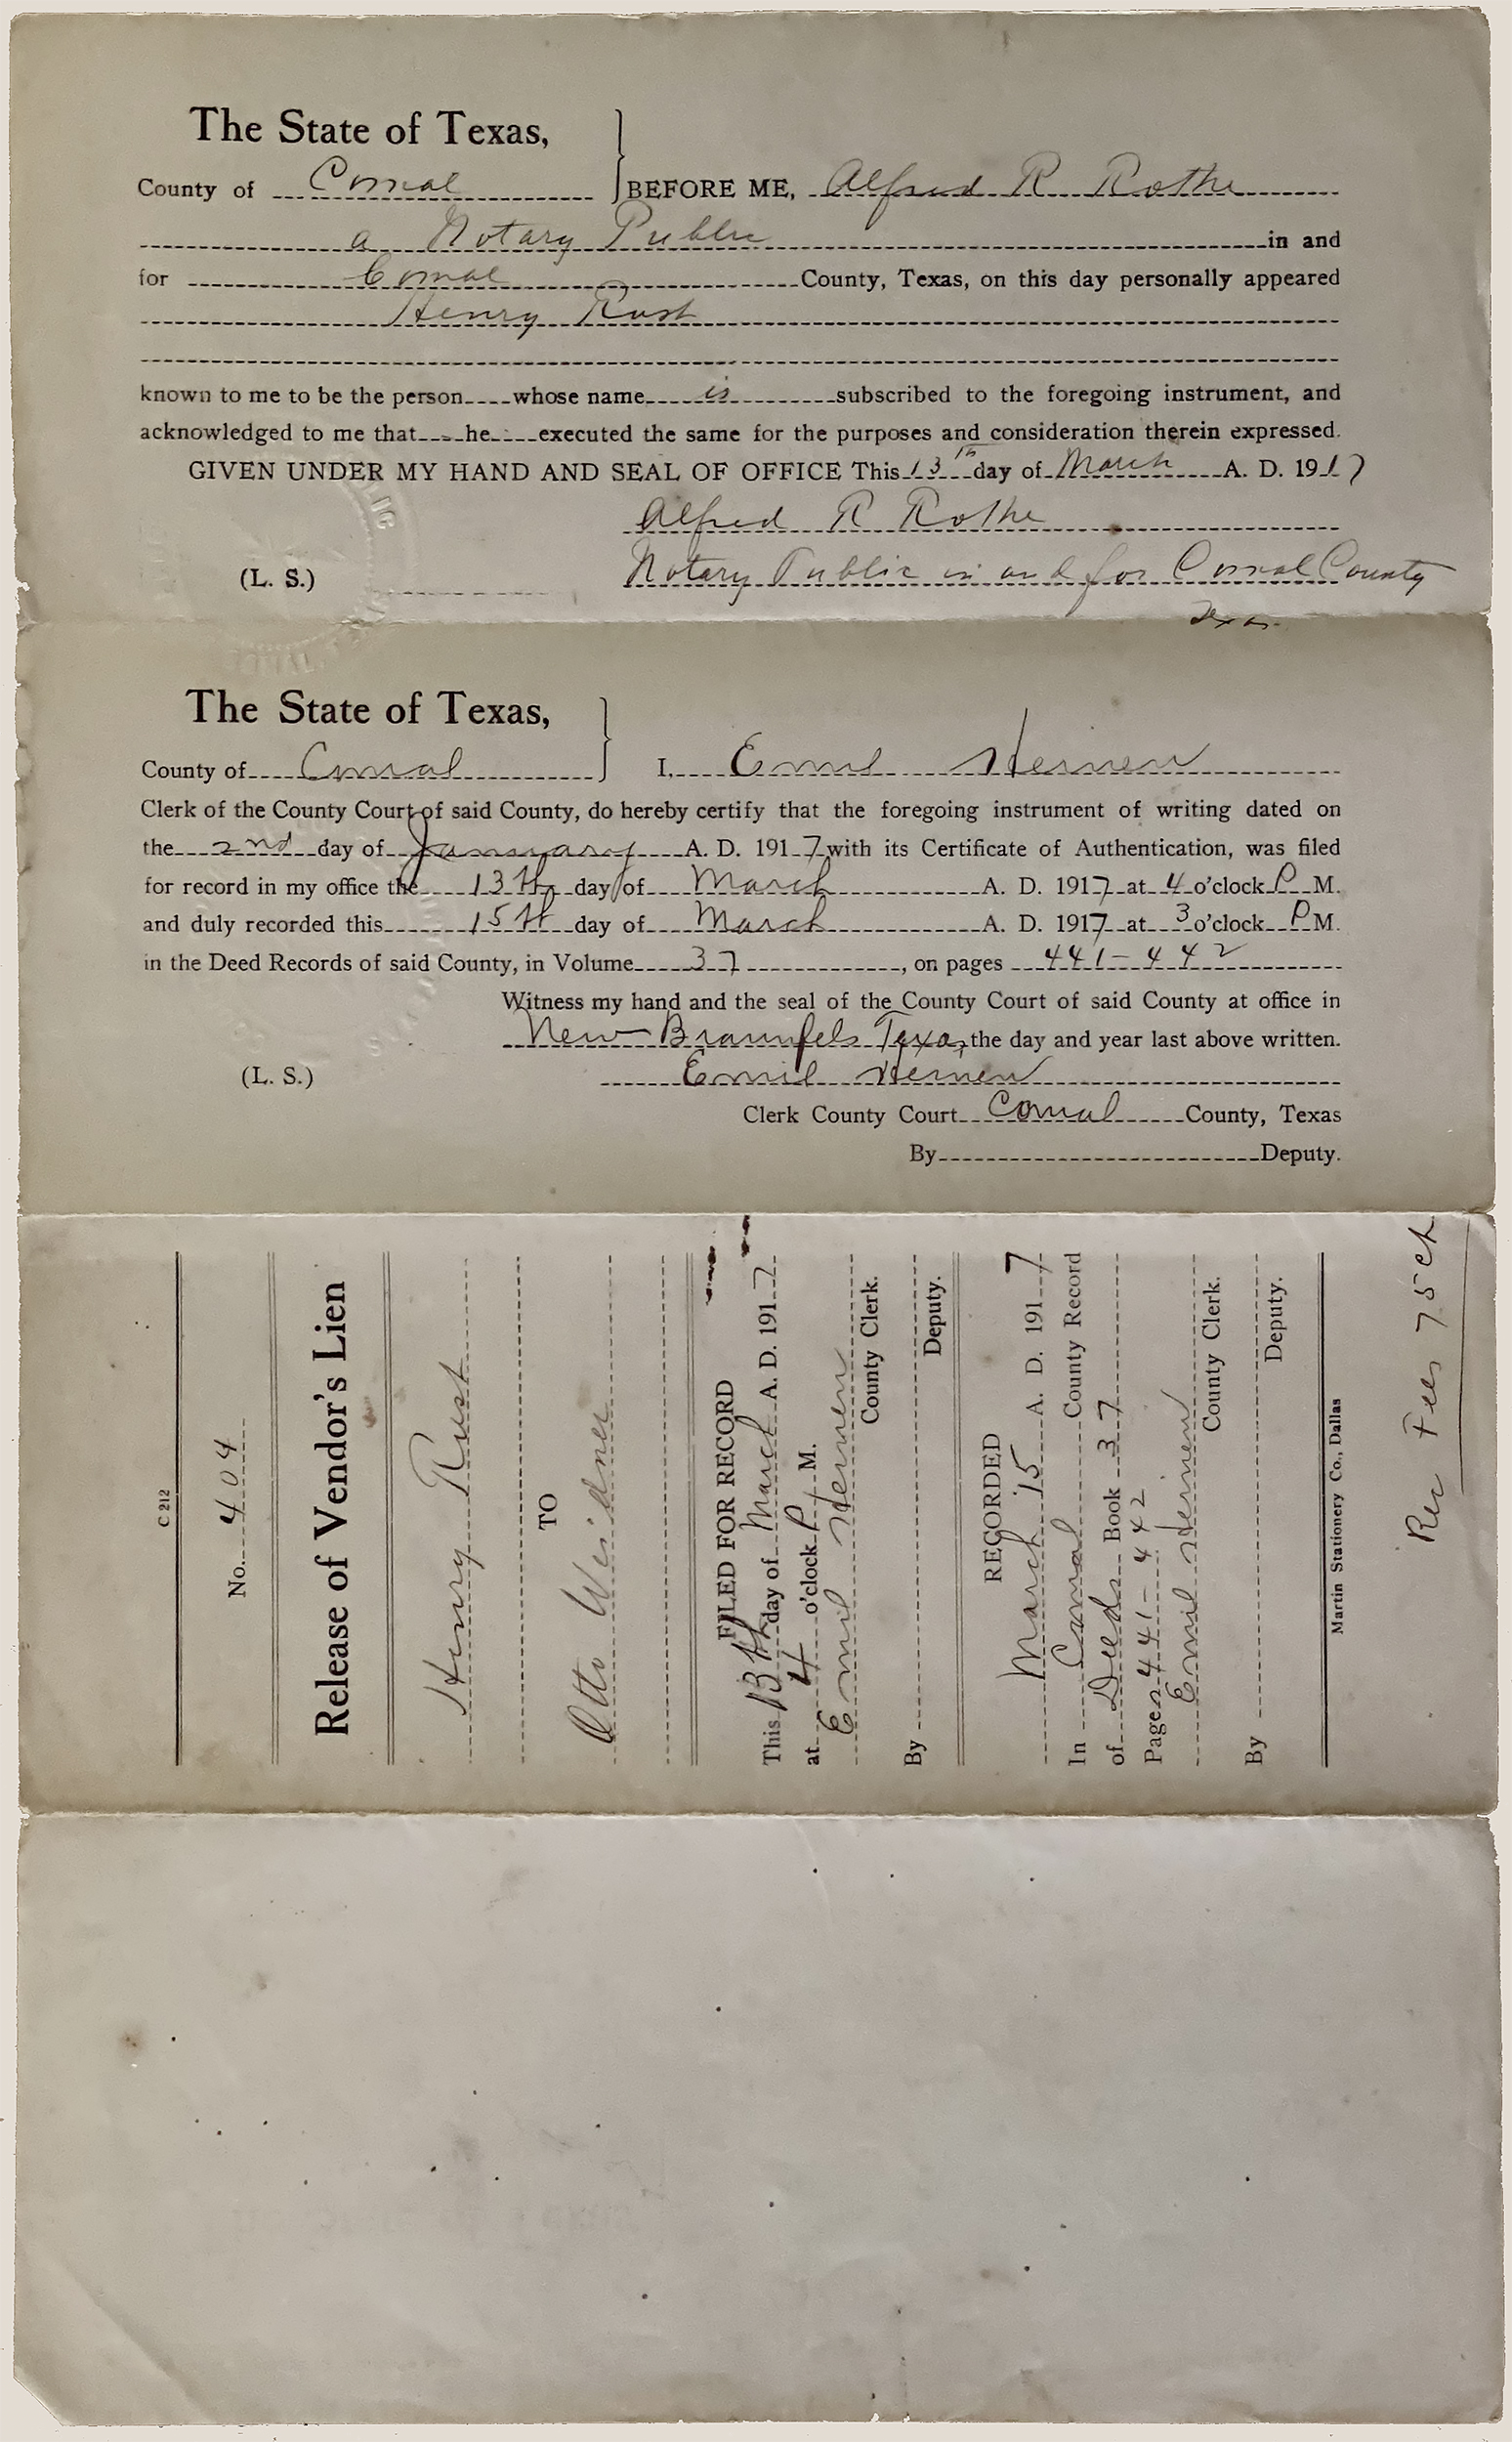 The State of Texas,
County of Comal } BEFORE ME, Alfred R Rothe
a Notary Public in and
for Comal County, Texas, on this day personally appeared
Henry Rust
known to me to be the person whose name is subscribed to the foregoing instrument, and
acknowledged to me that he executed the same for the purposes and consideration therein expressed.
GIVEN UNDER MY HAND AND SEAL OF OFFICE This 13th day of March A. D. 1917
Alfred R Rothe
(L. S.) Notary Public in and for Comal County
Texas
The State of Texas,
County of Comal } I, Emil Heinen
Clerk of the County Court of said County, do hereby certify that the foregoing instrument of writing dated on
the 2nd day of January A. D. 1917 with its Certificate of Authentication, was filed
for record in my office the 13th day of March A. D. 1917 at 4 o'clock P M.
and duly recorded this 15th day of March A. D. 1917 at 3 o'clock P M.
in the Deed Records of said County, in Volume 37, on pages 441-442
Witness my hand and the seal of the County Court of said County at office in
New Braunfels Texas, the day and year last above written.
(L. S.) Emil Heinen
Clerk County Court Comal County, Texas
By Deputy.
C 212
No. 404
Release of Vendor's Lien
Henry Rust
TO
Otto Weidner
FILED FOR RECORD
This 13th day of March A. D. 1917
at 4 o'clock P M.
Emil Heinen
County Clerk.
By
Deputy.
RECORDED
March 15 A. D. 1917
In Comal County Record
of Deeds Book 37
Pages 441-442
Emil Heinen
County Clerk.
By
Deputy.
Martin Stationery Co., Dallas
Rec Fees 75 ct